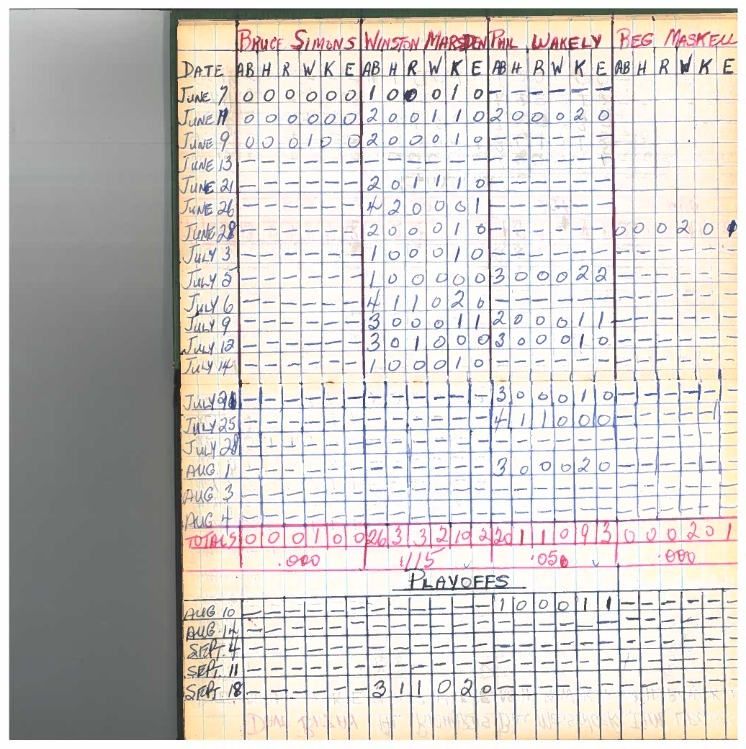 BRUCE SIMONS WINSTON MARSDEN PHIL WAKELY REG MASKELL
DATE AB H R W K E AB H R W K E AB H R W K E AB H R W K E
JUNE 7 0 0 0 0 0 0 1 0 0 0 1 0 - - - - - -
JUNE 0 0 0 0 0 0 2 0 0 1 1 0 2 0 0 0 2 0
JUNE 9 0 0 0 1 0 0 2 0 0 0 1 0 - - - - - -
JUNE 13 - - - - - - - - - - - - - - - - - -
JUNE 21 - - - - - - 2 0 1 1 1 0 - - - - - -
JUNE 26 - - - - - - 4 2 0 0 0 1 - - - - - -
JUNE 28 - - - - - - 2 0 0 0 1 0 - - - - - - 0 0 0 2 0
JULY 3 - - - - - - 1 0 0 0 1 0 - - - - - - - - - - - -
JULY 5 - - - - - - 1 0 0 0 0 0 3 0 0 0 2 2 - - - - - -
JULY 6 - - - - - - 4 1 1 0 2 0 - - - - - - - - - - - -
JULY 9 - - - - - - 3 0 0 0 1 1 2 0 0 0 1 1 - - - - - -
JULY 12 - - - - - - 3 0 1 0 0 0 3 0 0 0 1 0 - - - - - -
JULY 14 - - - - - - 1 0 0 0 1 0 - - - - - - - - - - - -
JULY - - - - - - - - - - - - 3 0 0 0 1 0 - - - - - -
JULY 25 - - - - - - - - - - - - 4 1 1 0 0 0 - - - - - -
JULY 28 - - - - - - - - - - - - - - - - - - - - - - - -
AUG 1 - - - - - - - - - - - - 3 0 0 0 2 0 - - - - - -
AUG 3 - - - - - - - - - - - - - - - - - - - - - - - -
AUG 4 - - - - - - - - - - - - - - - - - - - - - - - -
TOTALS 0 0 0 1 0 0 26 3 3 2 10 2 20 1 1 0 9 3 0 0 0 2 0 1
.000 .115 .050 .000
PLAYOFFS
AUG 10 - - - - - - - - - - - - 1 0 0 0 1 1 - - - - - -
AUG 14 - - - - - - - - - - - - - - - - - - - - - - - -
SEPT. 4 - - - - - - - - - - - - - - - - - - - - - - - -
SEPT. 11 - - - - - - - - - - - - - - - - - - - - - - - -
SEPT 18 - - - - - - 3 1 1 0 2 0 - - - - - - - - - - - -